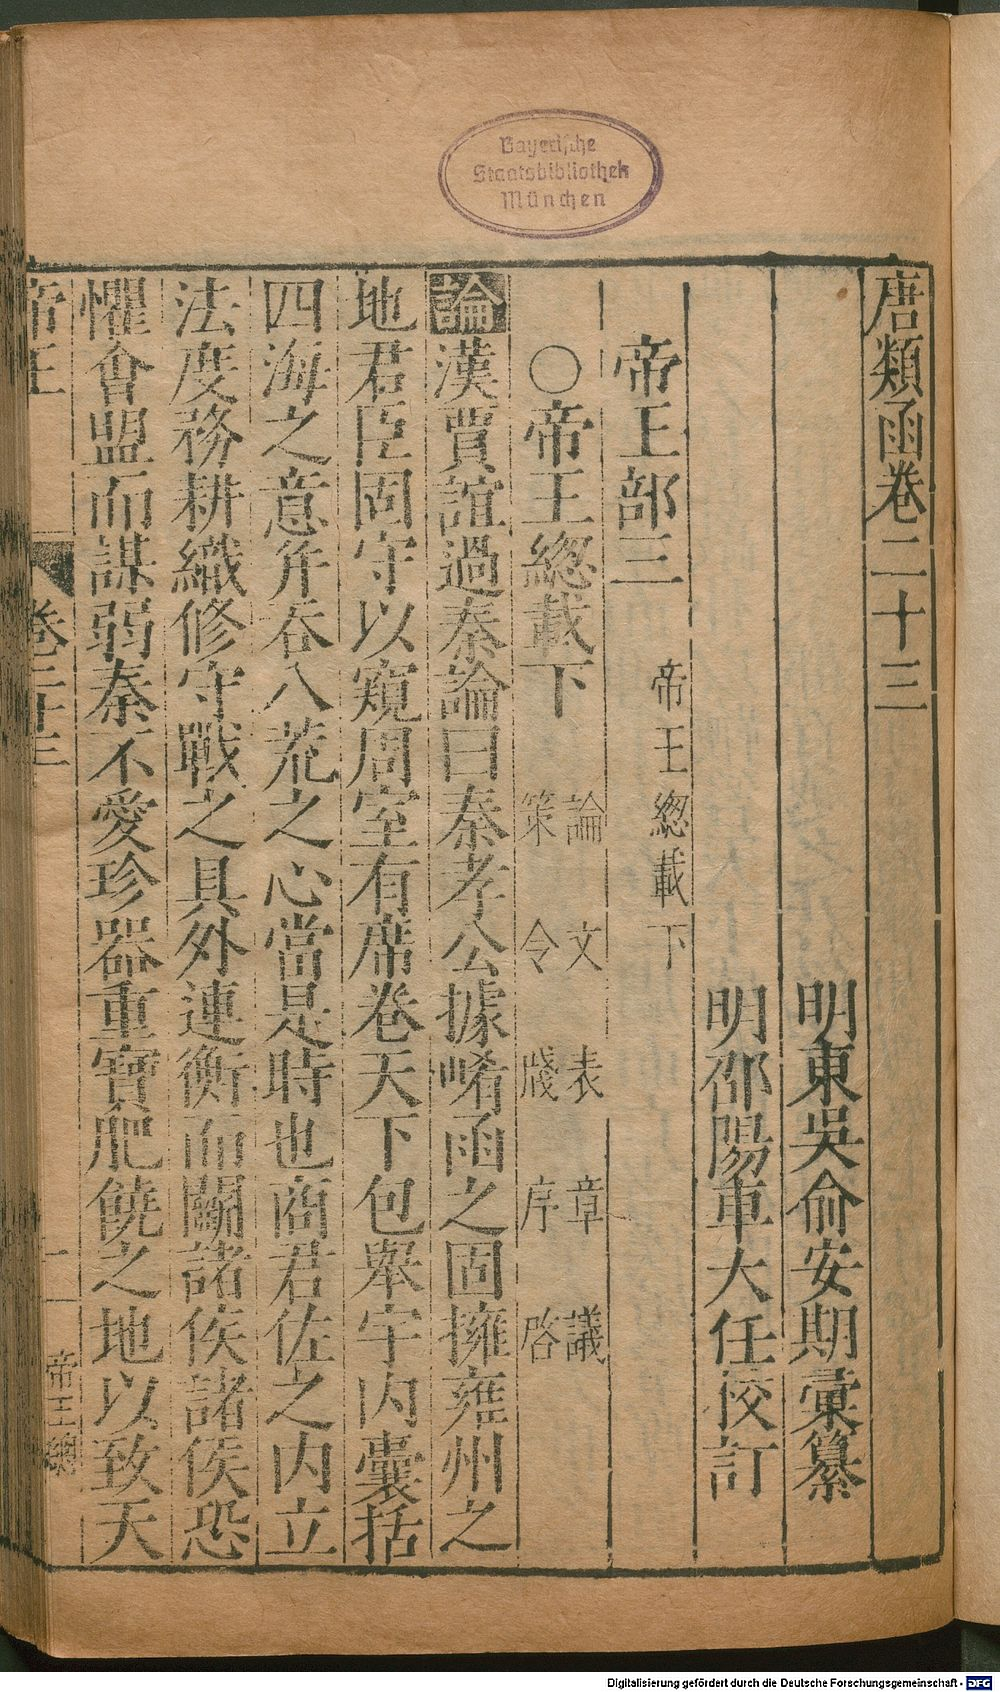 Bayerische
Staatsbibliothek
München
唐類函卷二十三
明東吳俞安期彙纂
明邵陽車大任校訂
帝王部三 帝王總載下
〇帝王總載下 論 文 表 章 議
策 令 牋 序 啓
論漢賈誼過秦論曰秦孝公據崤函之固擁雍州之
地君臣固守以窺周室有席卷天下包舉宇内囊括
四海之意并吞八荒之心當是時也商君佐之内立
法度務耕織修守戰之具外連衡而鬬諸侯諸侯恐
懼會盟而謀弱秦不愛珍器重寶肥饒之地以致天
帝王 卷二十三 一 帝王總
Digitalisierung gefördert durch die Deutsche Forschungsgemeinschaft - DFG